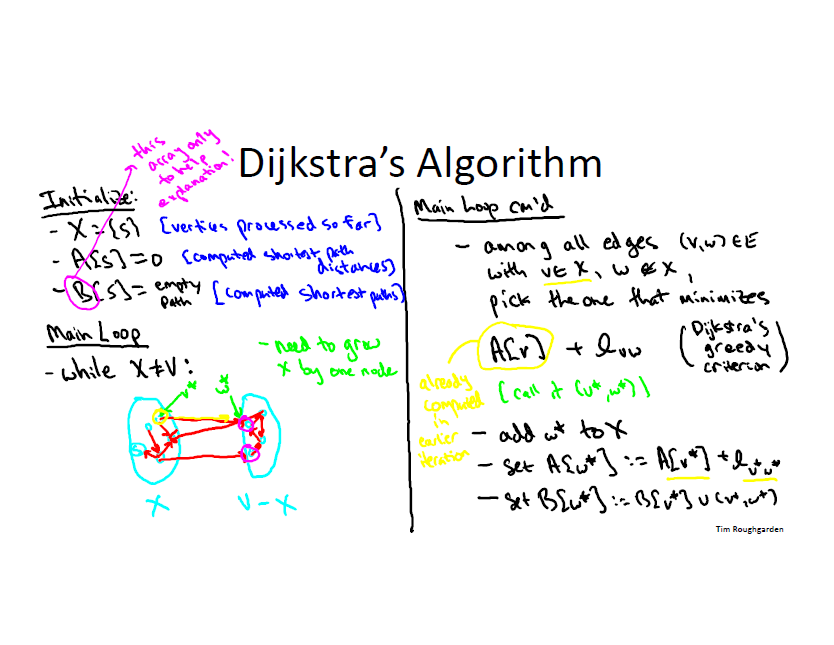 Dijkstra's Algorithm
this
array only
to help
explanation!
Initialize:
- X = {s} [vertices processed so far]
- A[s] = 0 [computed shortest path
distances]
- B[s] = empty
path [computed shortest paths]
Main Loop
- while X ≠ V:
- need to grow
X by one node
v*
w*
s
X
V - X
Main Loop cnt'd
- among all edges (v,w) ∈ E
with v ∈ X, w ∉ X,
pick the one that minimizes
A[v] + l_vw
(Dijkstra's
greedy
criterion)
already
computed
in
earlier
iteration
[call it (v*,w*)]
- add w* to X
- set A[w*] := A[v*] + l_v*w*
- set B[w*] := B[v*] ∪ (v*,w*)
Tim Roughgarden